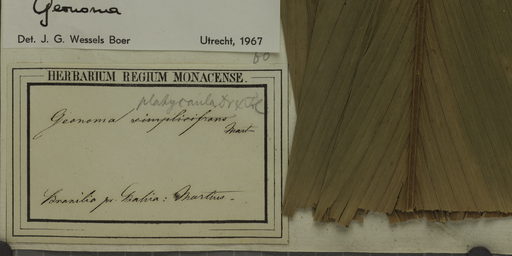 Geonoma
Det. J. G. Wessels Boer Utrecht, 1967
HERBARIUM REGIUM MONACENSE.
Geonoma simplicifrons
Mart
Brasilia pr. Bahia: Martius.